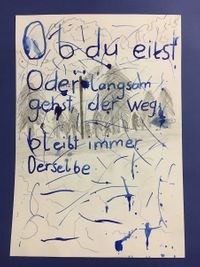 Ob du eilst
Oder langsam
gehst der weg
bleibt immer
Derselbe